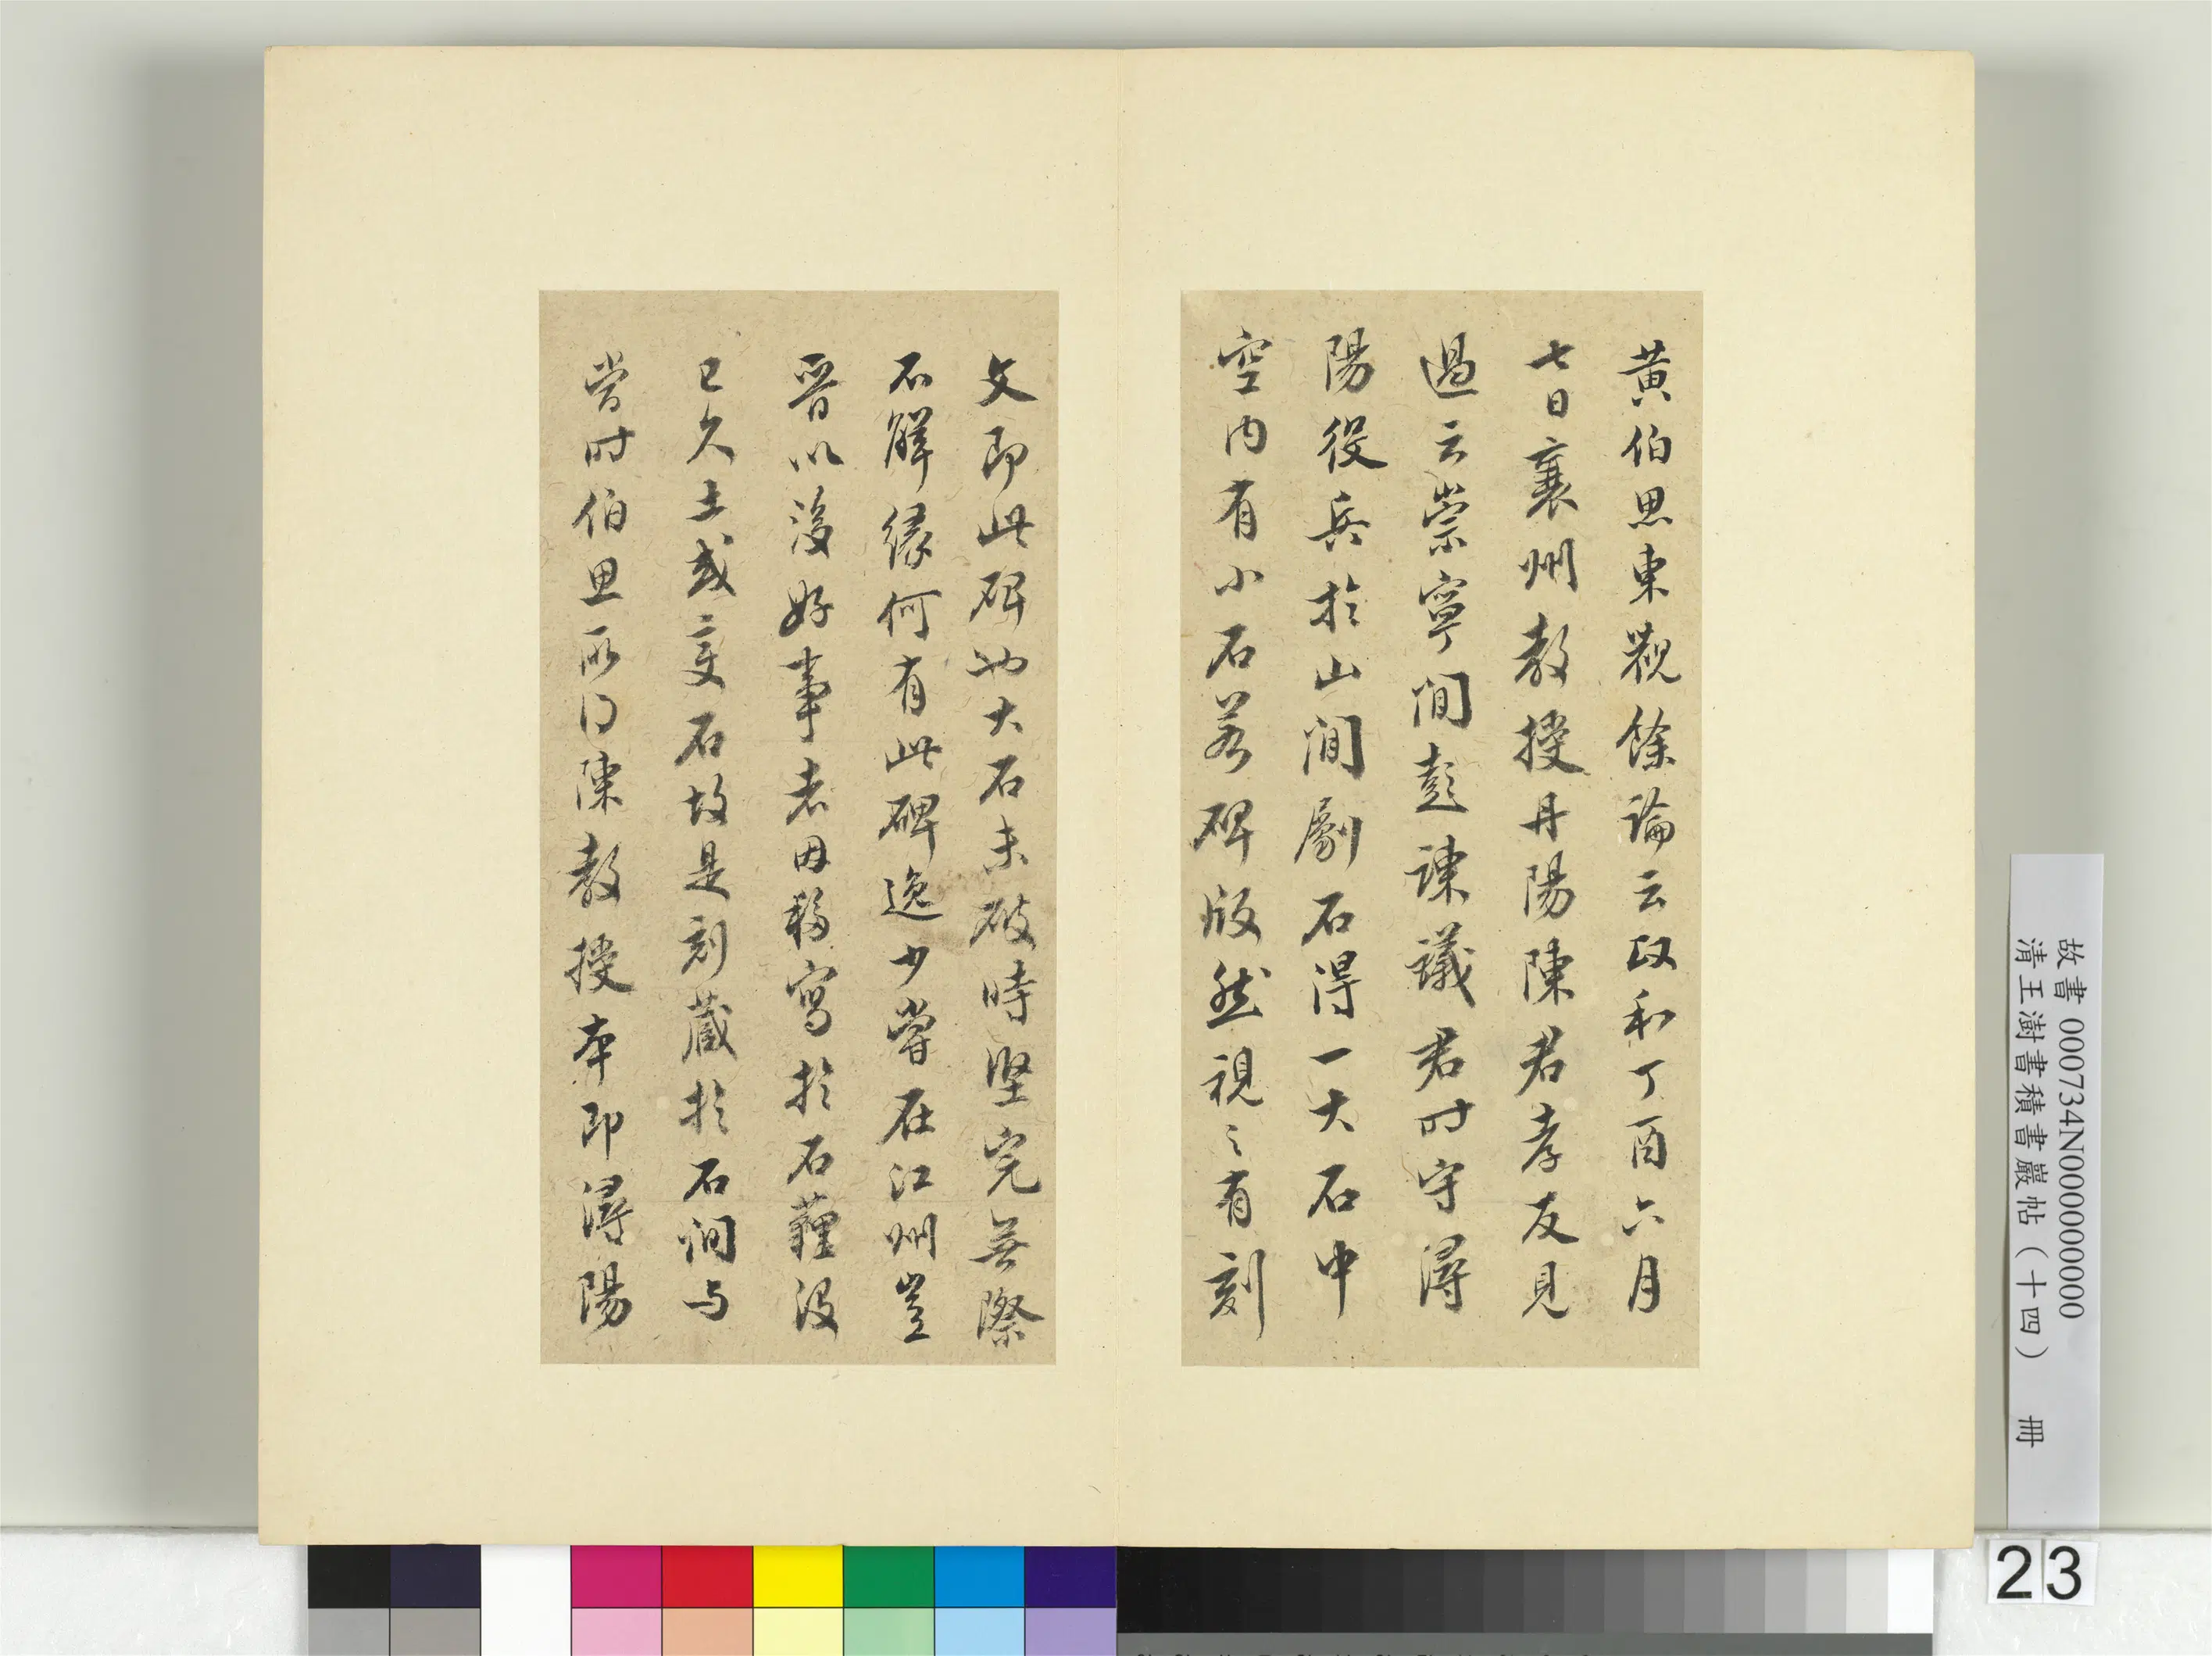 黃伯思東觀餘論云政和丁酉六月
七日襄州教授丹陽陳君孝友見
過云崇寧間彭諫議君時守潯
陽役兵於山間劚石得一大石中
空內有小石若碑版然視之有刻
文即此碑也大石未破時堅完無際
不解緣何有此碑逸少嘗在江州豈
晉以後好事者因移寫於石薶沒
已久土或變石故是刻藏於石間與
當時伯思所得陳教授本即潯陽
故書 000734N000000000
清王澍書積書巖帖（十四） 冊
23